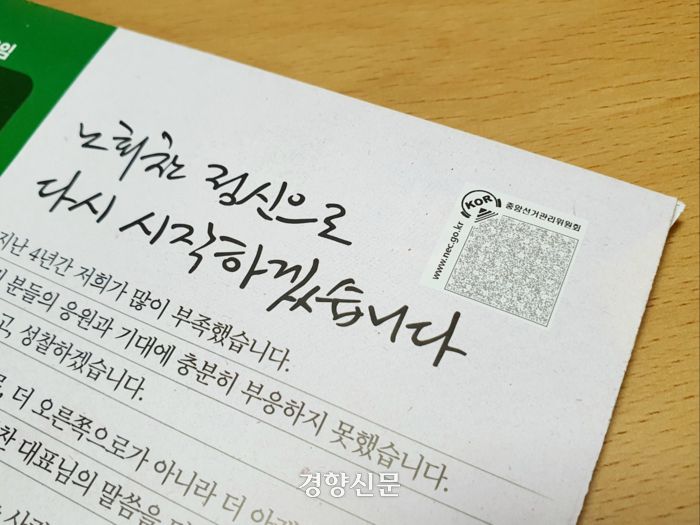 임
노회찬 정신으로
다시 시작하겠습니다
KOR
중앙선거관리위원회
www.nec.go.kr
지난 4년간 저희가 많이 부족했습니다.
분들의 응원과 기대에 충분히 부응하지 못했습니다.
고, 성찰하겠습니다.
더 오른쪽으로가 아니라 더 아래
찬 대표님의 말씀을
경향신문